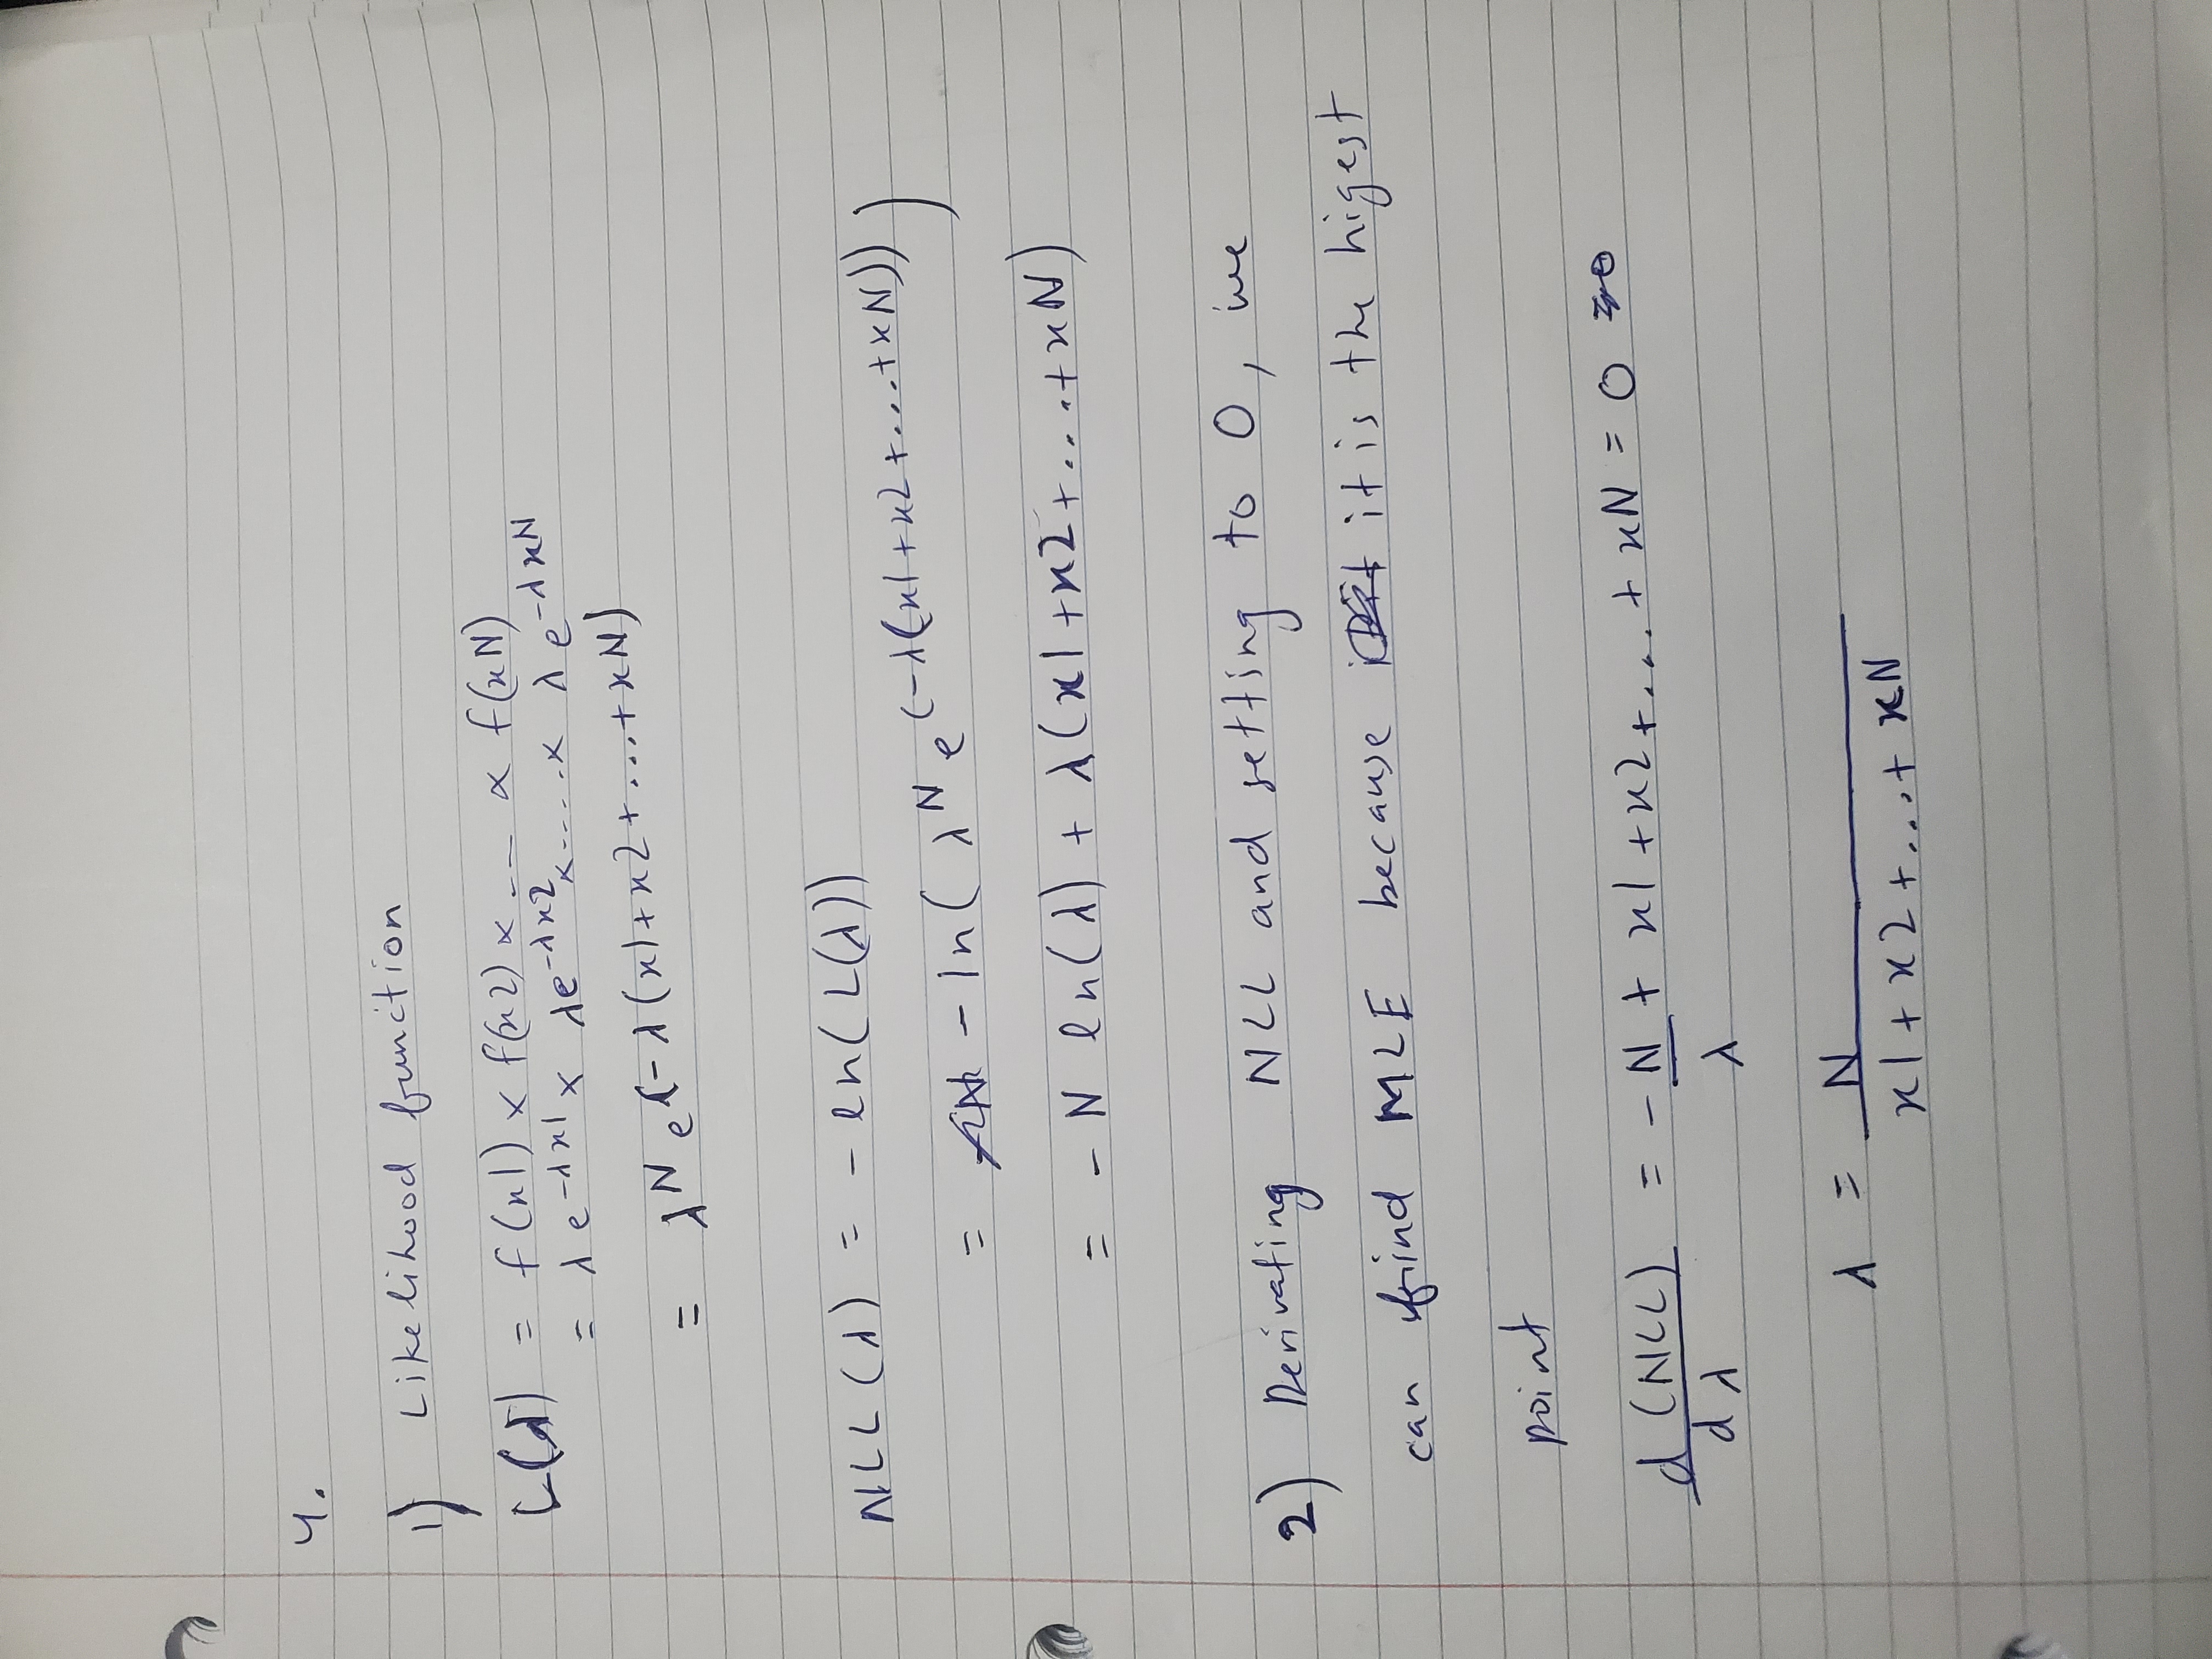 4.
1) Likelihood function
L(λ) = f(x1) × f(x2) × -- × f(xN)
= λe^-λx1 × λe^-λx2 × ..... × λe^-λxN
= λ^N e^(-λ(x1+x2+...+xN)
NLL(λ) = - ln(L(λ))
= - ln( λ^N e^(-λ(x1+x2+...+xN)) )
= - N ln(λ) + λ(x1+x2+...+xN)
2) Derivating NLL and setting to 0, we
can find MLE because it is the higest
point
d(NLL)/dλ = - N/λ + x1+x2+....+xN = 0
λ = N/x1+x2+...+xN